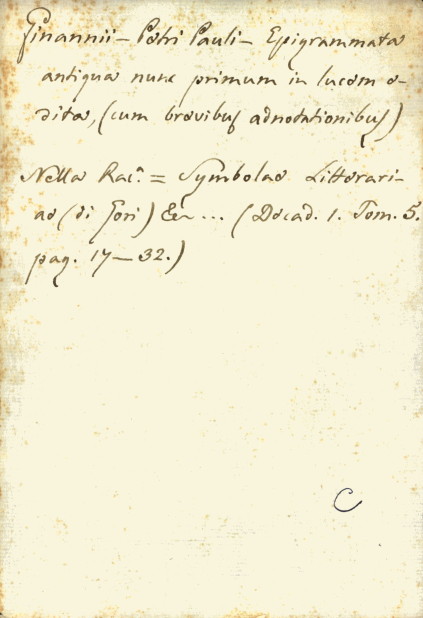 Ginannii - Petri Pauli - Epigrammata
antiqua nunc primum in lucem e-
dita, (cum brevibus adnotationibus)
Nella Rac.ª = Symbolae Litterari-
ae (di Gori) &c ... (Decad. 1. Tom. 5.
pag. 17 — 32.)
C